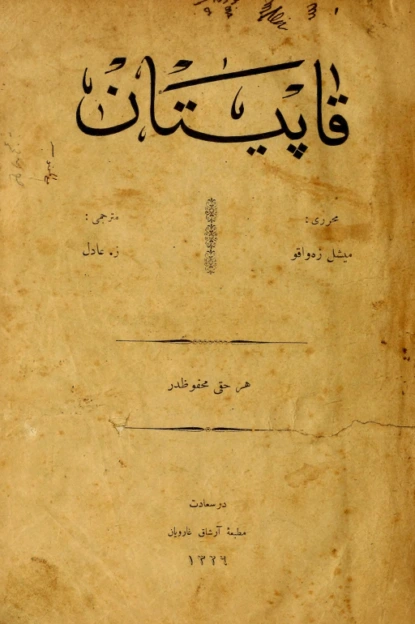 قاپيتان
محررى :
ميشل زه‌واقو
مترجمى :
زه‌ عادل
هر حقى محفوظدر
در سعادت
مطبعهٔ آرشاق غارويان
١٣٢٩